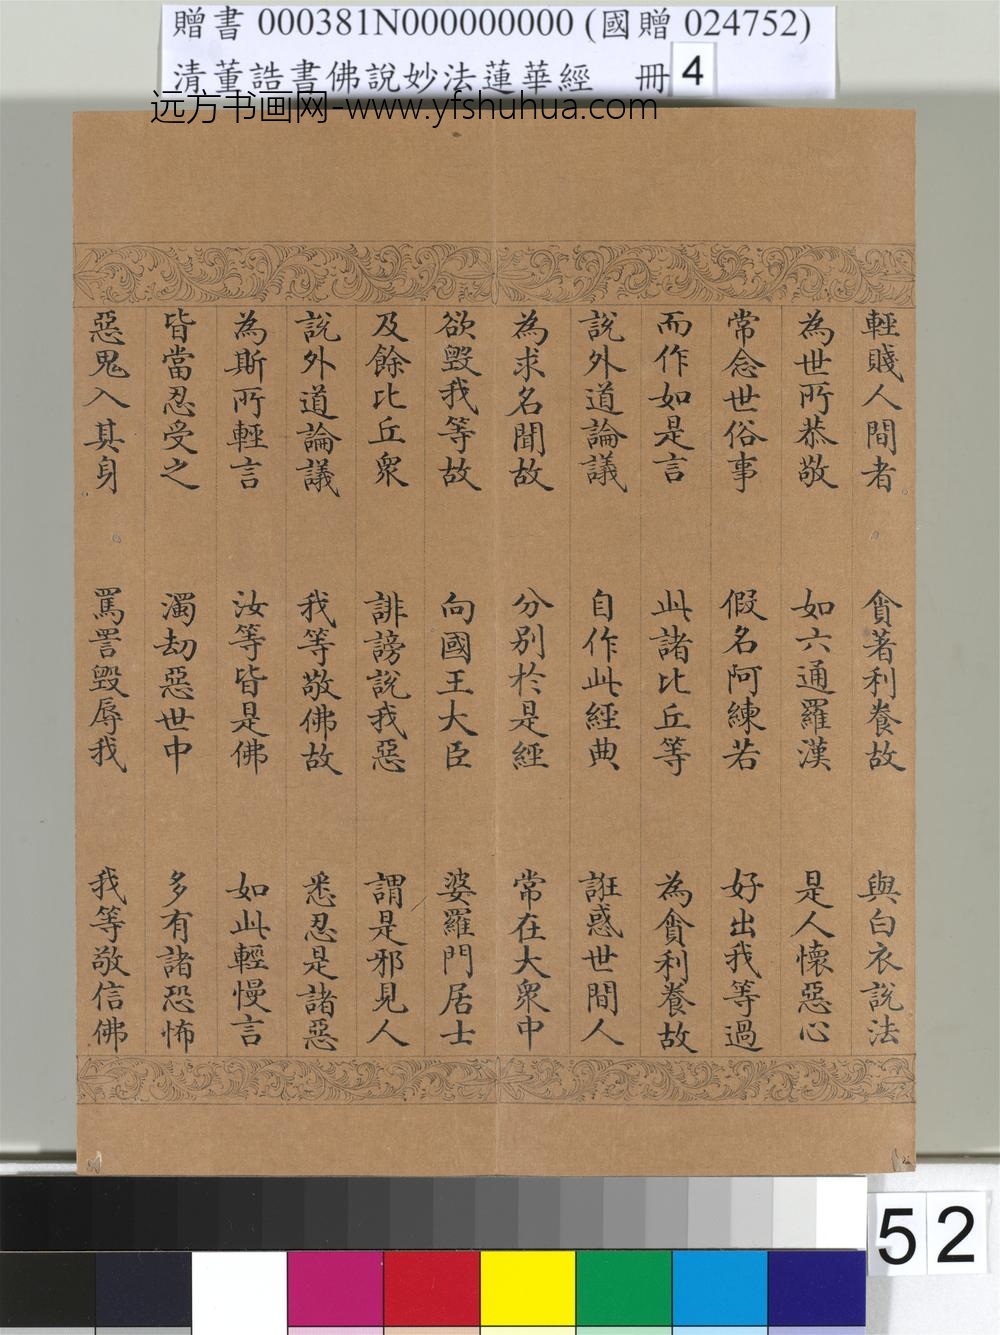 贈書 000381N000000000 (國贈 024752)
清董誥書佛說妙法蓮華經 冊 4
远方书画网-www.yfshuhua.com
輕賤人間者 貪著利養故 與白衣說法
為世所恭敬 如六通羅漢 是人懷惡心
常念世俗事 假名阿練若 好出我等過
而作如是言 此諸比丘等 為貪利養故
說外道論議 自作此經典 誑惑世間人
為求名聞故 分別於是經 常在大衆中
欲毀我等故 向國王大臣 婆羅門居士
及餘比丘衆 誹謗說我惡 謂是邪見人
說外道論議 我等敬佛故 悉忍是諸惡
為斯所輕言 汝等皆是佛 如此輕慢言
皆當忍受之 濁劫惡世中 多有諸恐怖
惡鬼入其身 罵詈毀辱我 我等敬信佛
52